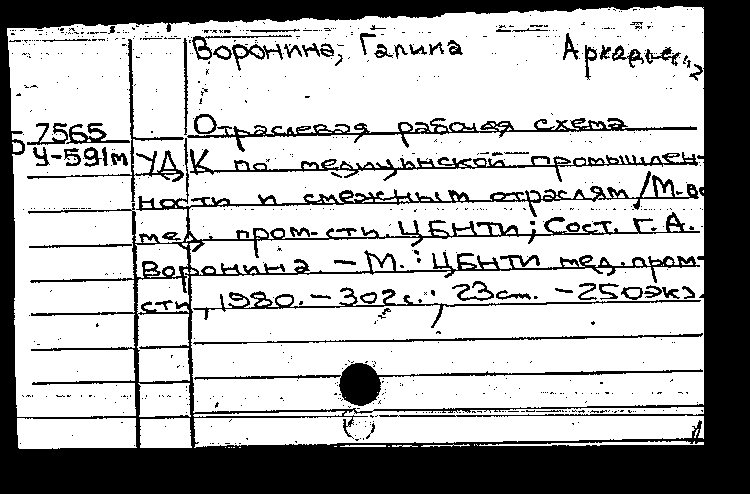 Воронина, Галина Аркадьевн
Отраслевая рабочая схема
7565
Ч-591м УДК по медицинской промышлен-
ности и смежным отраслям / М-во
мед. пром-сти. ЦБНТИ; Сост. Г. А.
Воронина. – М.: ЦБНТИ мед. пром-
сти, 1980. – 302 с.; 23 см. – 250 экз.